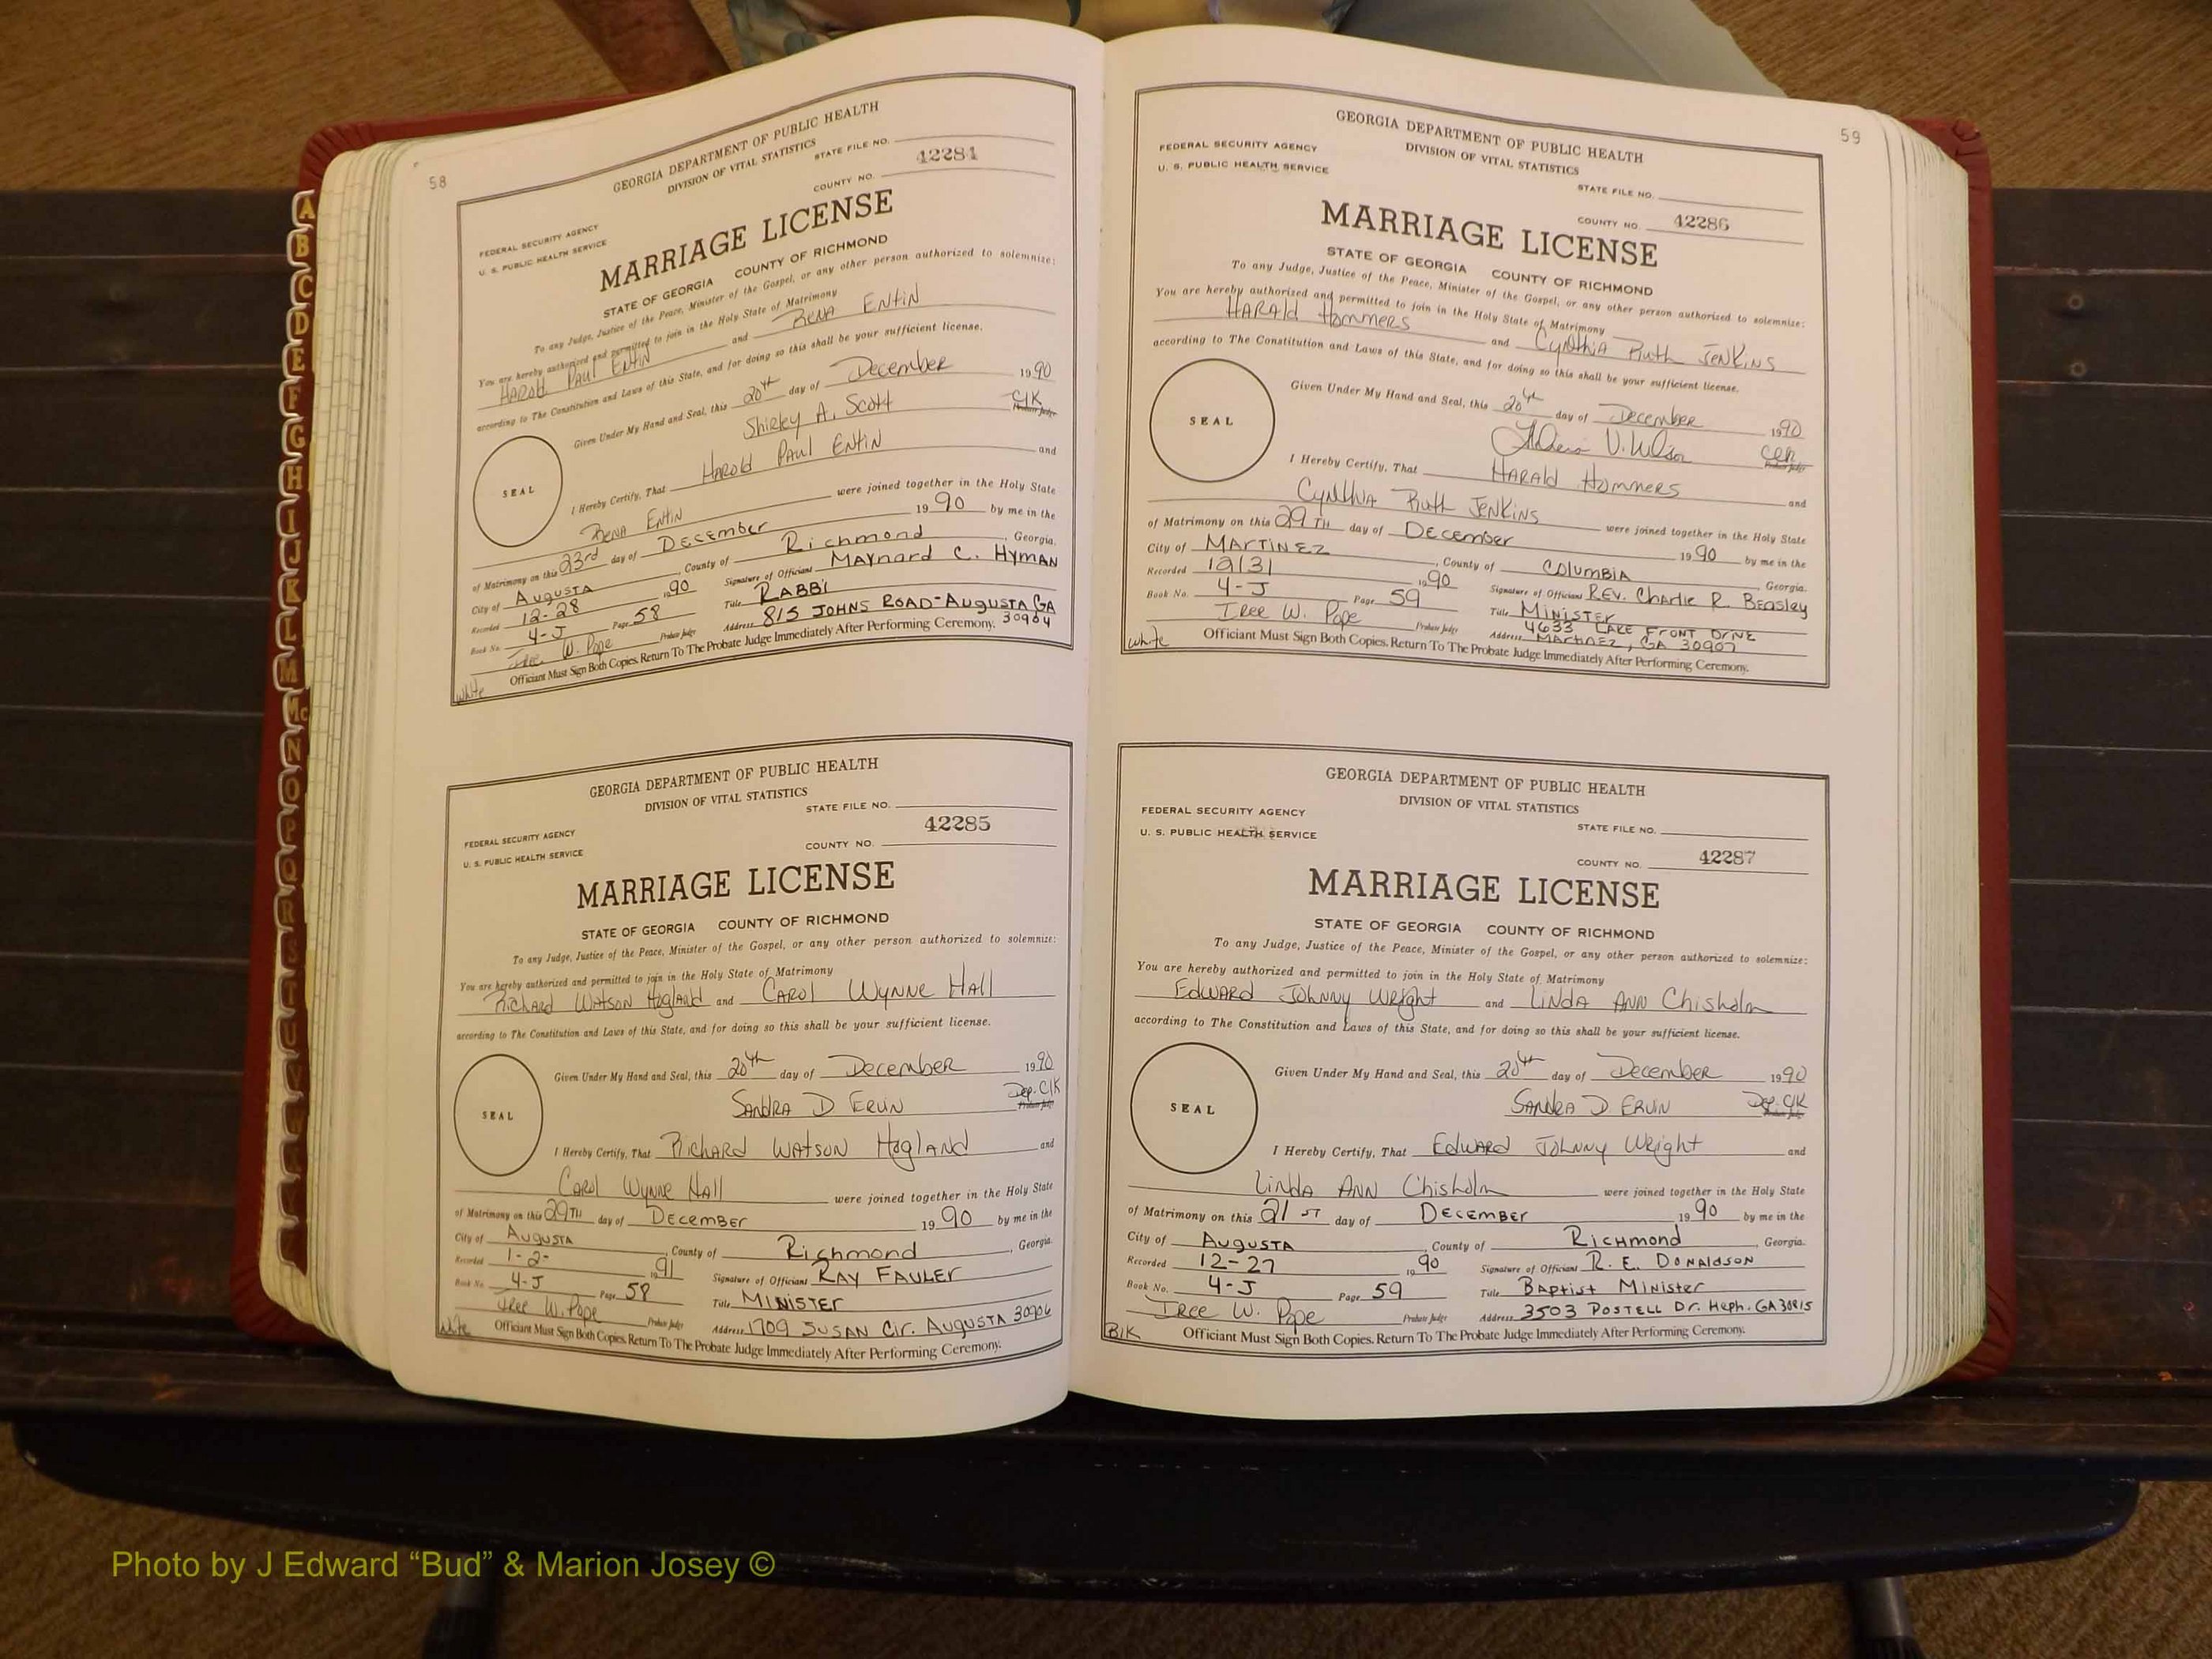 58
GEORGIA DEPARTMENT OF PUBLIC HEALTH
DIVISION OF VITAL STATISTICS
STATE FILE NO.
42284
COUNTY NO.
FEDERAL SECURITY AGENCY
U. S. PUBLIC HEALTH SERVICE
MARRIAGE LICENSE
STATE OF GEORGIA COUNTY OF RICHMOND
To any Judge, Justice of the Peace, Minister of the Gospel, or any other person authorized to solemnize:
You are hereby authorized and permitted to join in the Holy State of Matrimony
Harold Paul Entin and Rena Entin
according to The Constitution and Laws of this State, and for doing so this shall be your sufficient license.
Given Under My Hand and Seal, this 20th day of December 1990
Shirley A. Scott Clk Probate Judge
SEAL
I Hereby Certify, That Harold Paul Entin and
Rena Entin were joined together in the Holy State
of Matrimony on this 23rd day of December 1990 by me in the
City of Augusta, County of Richmond, Georgia.
Recorded 12-28 1990 Signature of Officiant Maynard C. Hyman
Book No. 4-J Page 58 Title RABBI
W. Pope Probate Judge Address 815 Johns Road-Augusta GA 30904
white Officiant Must Sign Both Copies. Return To The Probate Judge Immediately After Performing Ceremony.
GEORGIA DEPARTMENT OF PUBLIC HEALTH
DIVISION OF VITAL STATISTICS
STATE FILE NO.
42285
FEDERAL SECURITY AGENCY
COUNTY NO.
U. S. PUBLIC HEALTH SERVICE
MARRIAGE LICENSE
STATE OF GEORGIA COUNTY OF RICHMOND
To any Judge, Justice of the Peace, Minister of the Gospel, or any other person authorized to solemnize:
You are hereby authorized and permitted to join in the Holy State of Matrimony
Richard Watson Hogland and Carol Wynne Hall
according to The Constitution and Laws of this State, and for doing so this shall be your sufficient license.
Given Under My Hand and Seal, this 20th day of December 1990
Sandra D Ervin Dep. Clk Probate Judge
SEAL
I Hereby Certify, That Richard Watson Hogland and
Carol Wynne Hall were joined together in the Holy State
of Matrimony on this 29TH day of December 1990 by me in the
City of Augusta, County of Richmond, Georgia.
Recorded 1-2- 1991 Signature of Officiant Ray Fauler
Book No. 4-J Page 58 Title Minister
W. Pope Probate Judge Address 1709 Susan Cir. Augusta 30906
white Officiant Must Sign Both Copies. Return To The Probate Judge Immediately After Performing Ceremony.
59
GEORGIA DEPARTMENT OF PUBLIC HEALTH
DIVISION OF VITAL STATISTICS
FEDERAL SECURITY AGENCY
U. S. PUBLIC HEALTH SERVICE
STATE FILE NO.
COUNTY NO. 42286
MARRIAGE LICENSE
STATE OF GEORGIA COUNTY OF RICHMOND
To any Judge, Justice of the Peace, Minister of the Gospel, or any other person authorized to solemnize:
You are hereby authorized and permitted to join in the Holy State of Matrimony
Harald Hommers and Cynthia Ruth Jenkins
according to The Constitution and Laws of this State, and for doing so this shall be your sufficient license.
Given Under My Hand and Seal, this 20th day of December 1990
V. Wilson Probate Judge
SEAL
I Hereby Certify, That Harald Hommers and
Cynthia Ruth Jenkins were joined together in the Holy State
of Matrimony on this 29TH day of December 1990 by me in the
City of Martinez, County of Columbia, Georgia.
Recorded 12/31 1990 Signature of Officiant Rev. Charlie R. Beasley
Book No. 4-J Page 59 Title Minister
W. Pope Probate Judge Address 4633 Lake Front Drive
Martinez, GA 30907
white Officiant Must Sign Both Copies. Return To The Probate Judge Immediately After Performing Ceremony.
GEORGIA DEPARTMENT OF PUBLIC HEALTH
DIVISION OF VITAL STATISTICS
FEDERAL SECURITY AGENCY
U. S. PUBLIC HEALTH SERVICE
STATE FILE NO.
COUNTY NO. 42287
MARRIAGE LICENSE
STATE OF GEORGIA COUNTY OF RICHMOND
To any Judge, Justice of the Peace, Minister of the Gospel, or any other person authorized to solemnize:
You are hereby authorized and permitted to join in the Holy State of Matrimony
Edward Johnny Wright and Linda Ann Chisholm
according to The Constitution and Laws of this State, and for doing so this shall be your sufficient license.
Given Under My Hand and Seal, this 20th day of December 1990
Sandra D Ervin Dep. Clk Probate Judge
SEAL
I Hereby Certify, That Edward Johnny Wright and
Linda Ann Chisholm were joined together in the Holy State
of Matrimony on this 21ST day of December 1990 by me in the
City of Augusta, County of Richmond, Georgia.
Recorded 12-27 1990 Signature of Officiant R. E. Donaldson
Book No. 4-J Page 59 Title Baptist Minister
W. Pope Probate Judge Address 3503 Postell Dr. Heph. GA 30815
Blk Officiant Must Sign Both Copies. Return To The Probate Judge Immediately After Performing Ceremony.
A
B
C
D
E
F
G
H
I
J
K
L
M
Mc
N
O
P
Q
R
Photo by J Edward “Bud” & Marion Josey ©